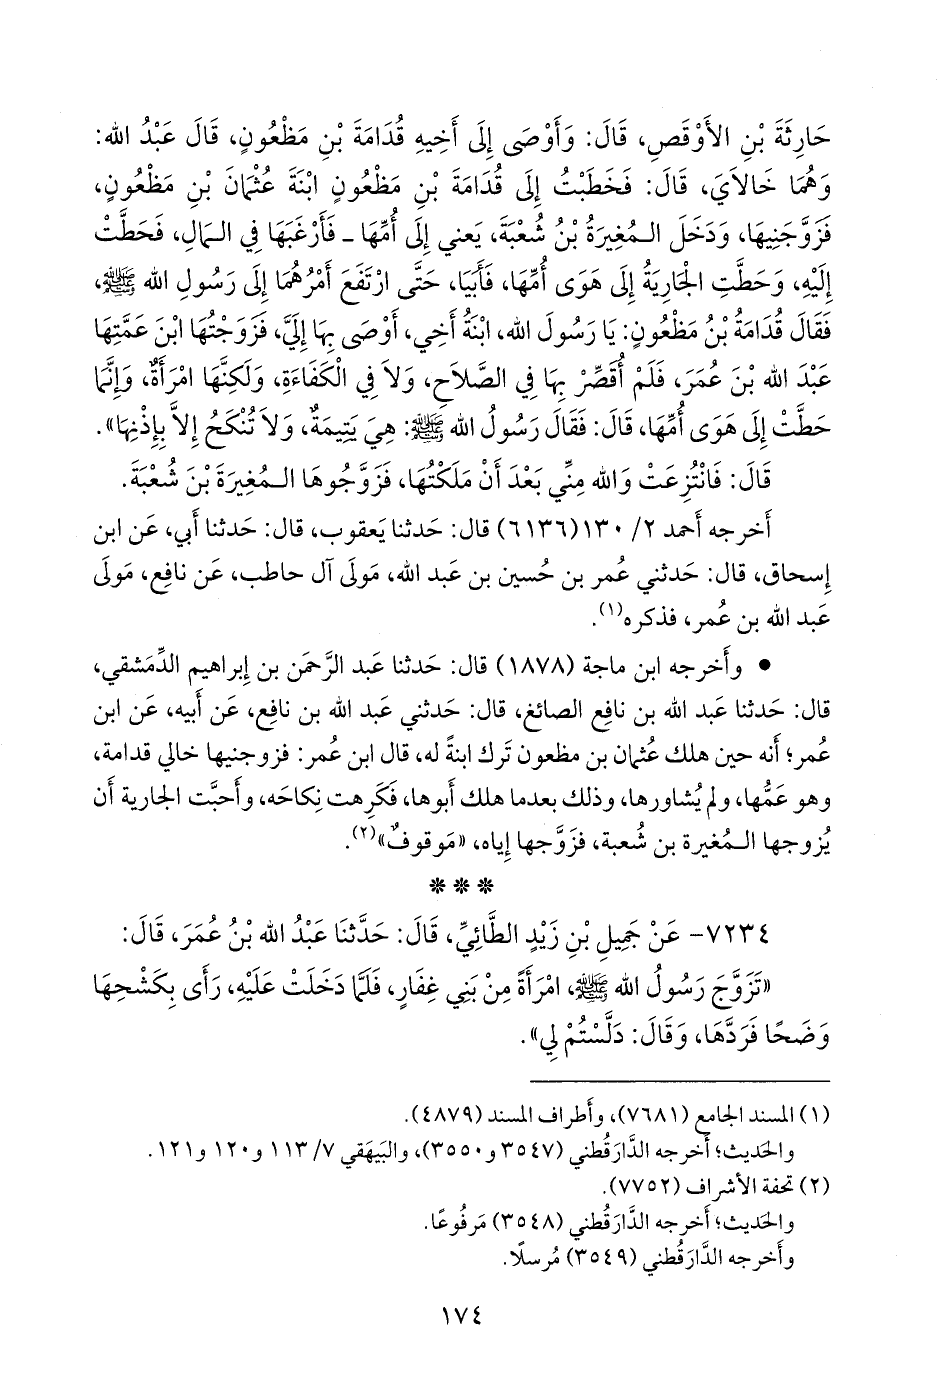 حَارِثَةَ بْنِ الأَوْقَصِ، قَالَ: وَأَوْصَى إِلَى أَخِيهِ قُدَامَةَ بْنِ مَظْعُونٍ، قَالَ عَبْدُ الله:
وَهُمَا خَالاَيَ، قَالَ: فَخَطَبْتُ إِلَى قُدَامَةَ بْنِ مَظْعُونٍ ابْنَةَ عُثْمَانَ بْنِ مَظْعُونٍ،
فَزَوَّجَنِيهَا، وَدَخَلَ الْمُغِيرَةُ بْنُ شُعْبَةَ، يَعني إِلَى أُمِّهَا - فَأَرْغَبَهَا فِي الْمَالِ، فَحَطَّتْ
إِلَيْهِ، وَحَطَّتِ الْجَارِيَةُ إِلَى هَوَى أُمِّهَا، فَأَبَيَا، حَتَّى ارْتَفَعَ أَمْرُهُمَا إِلَى رَسُولِ الله ﷺ،
فَقَالَ قُدَامَةُ بْنُ مَظْعُونٍ: يَا رَسُولَ الله، ابْنَةُ أَخِي، أَوْصَى بِهَا إِلَيَّ، فَزَوَّجْتُهَا ابْنَ عَمَّتِهَا
عَبْدَ الله بْنَ عُمَرَ، فَلَمْ أُقَصِّرْ بِهَا فِي الصَّلاَحِ، وَلاَ فِي الْكَفَاءَةِ، وَلَكِنَّهَا امْرَأَةٌ، وَإِنَّمَا
حَطَّتْ إِلَى هَوَى أُمِّهَا، قَالَ: فَقَالَ رَسُولُ الله ﷺ: هِيَ يَتِيمَةٌ، وَلاَ تُنْكَحُ إِلاَّ بِإِذْنِهَا».
قَالَ: فَانْتُزِعَتْ وَالله مِنِّي بَعْدَ أَنْ مَلَكْتُهَا، فَزَوَّجُوهَا الْمُغِيرَةَ بْنَ شُعْبَةَ.
أَخرجه أَحمد ٢/ ١٣٠(٦١٣٦) قال: حَدثنا يَعقوب، قال: حَدثنا أَبي، عَن ابن
إِسحاق، قال: حَدثني عُمر بن حُسين بن عَبد الله، مَولَى آل حاطب، عَن نافِع، مَولَى
عَبد الله بن عُمر، فذكره(١).
• وأَخرجه ابن ماجة (١٨٧٨) قال: حَدثنا عَبد الرَّحمَن بن إِبراهيم الدِّمَشقي،
قال: حَدثنا عَبد الله بن نافِع الصائغ، قال: حَدثني عَبد الله بن نافِع، عَن أَبيه، عَن ابن
عُمر؛ أَنه حين هلك عُثمان بن مظعون تَرك ابنةً له، قال ابن عُمر: فزوجنيها خالي قدامة،
وهو عَمُّها، ولم يُشاورها، وذلك بعدما هلك أَبوها، فكَرِهت نِكاحَه، وأَحبَّت الجارية أَن
يُزوجها الـمُغيرة بن شُعبة، فزَوَّجها إِياه، «مَوقوفٌ»(٢).
* * *
٧٢٣٤- عَنْ جَمِيلِ بْنِ زَيْدٍ الطَّائِيِّ، قَالَ: حَدَّثَنَا عَبْدُ الله بْنُ عُمَرَ، قَالَ:
«تَزَوَّجَ رَسُولُ الله ﷺ، امْرَأَةً مِنْ بَنِي غِفَارٍ، فَلَمَّا دَخَلَتْ عَلَيْهِ، رَأَى بِكَشْحِهَا
وَضَحًا فَرَدَّهَا، وَقَالَ: دَلَّسْتُمْ لِي».
(١) المسند الجامع (٧٦٨١)، وأَطراف المسند (٤٨٧٩).
والحَديث؛ أَخرجه الدَّارَقُطني (٣٥٤٧ و٣٥٥٠)، والبَيهَقي ٧/ ١١٣ و١٢٠ و١٢١.
(٢) تحفة الأَشراف (٧٧٥٢).
والحَديث؛ أَخرجه الدَّارَقُطني (٣٥٤٨) مَرفُوعًا.
وأَخرجه الدَّارَقُطني (٣٥٤٩) مُرسلًا.
١٧٤